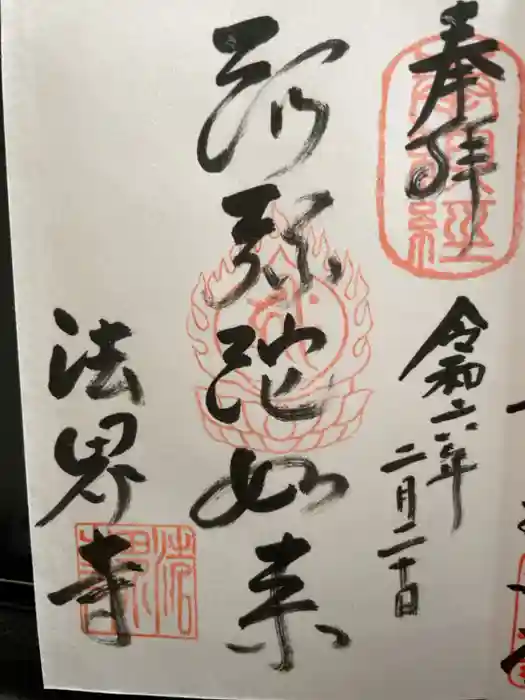 奉拝
令和六年
二月二十日
阿弥陀如来
法界寺